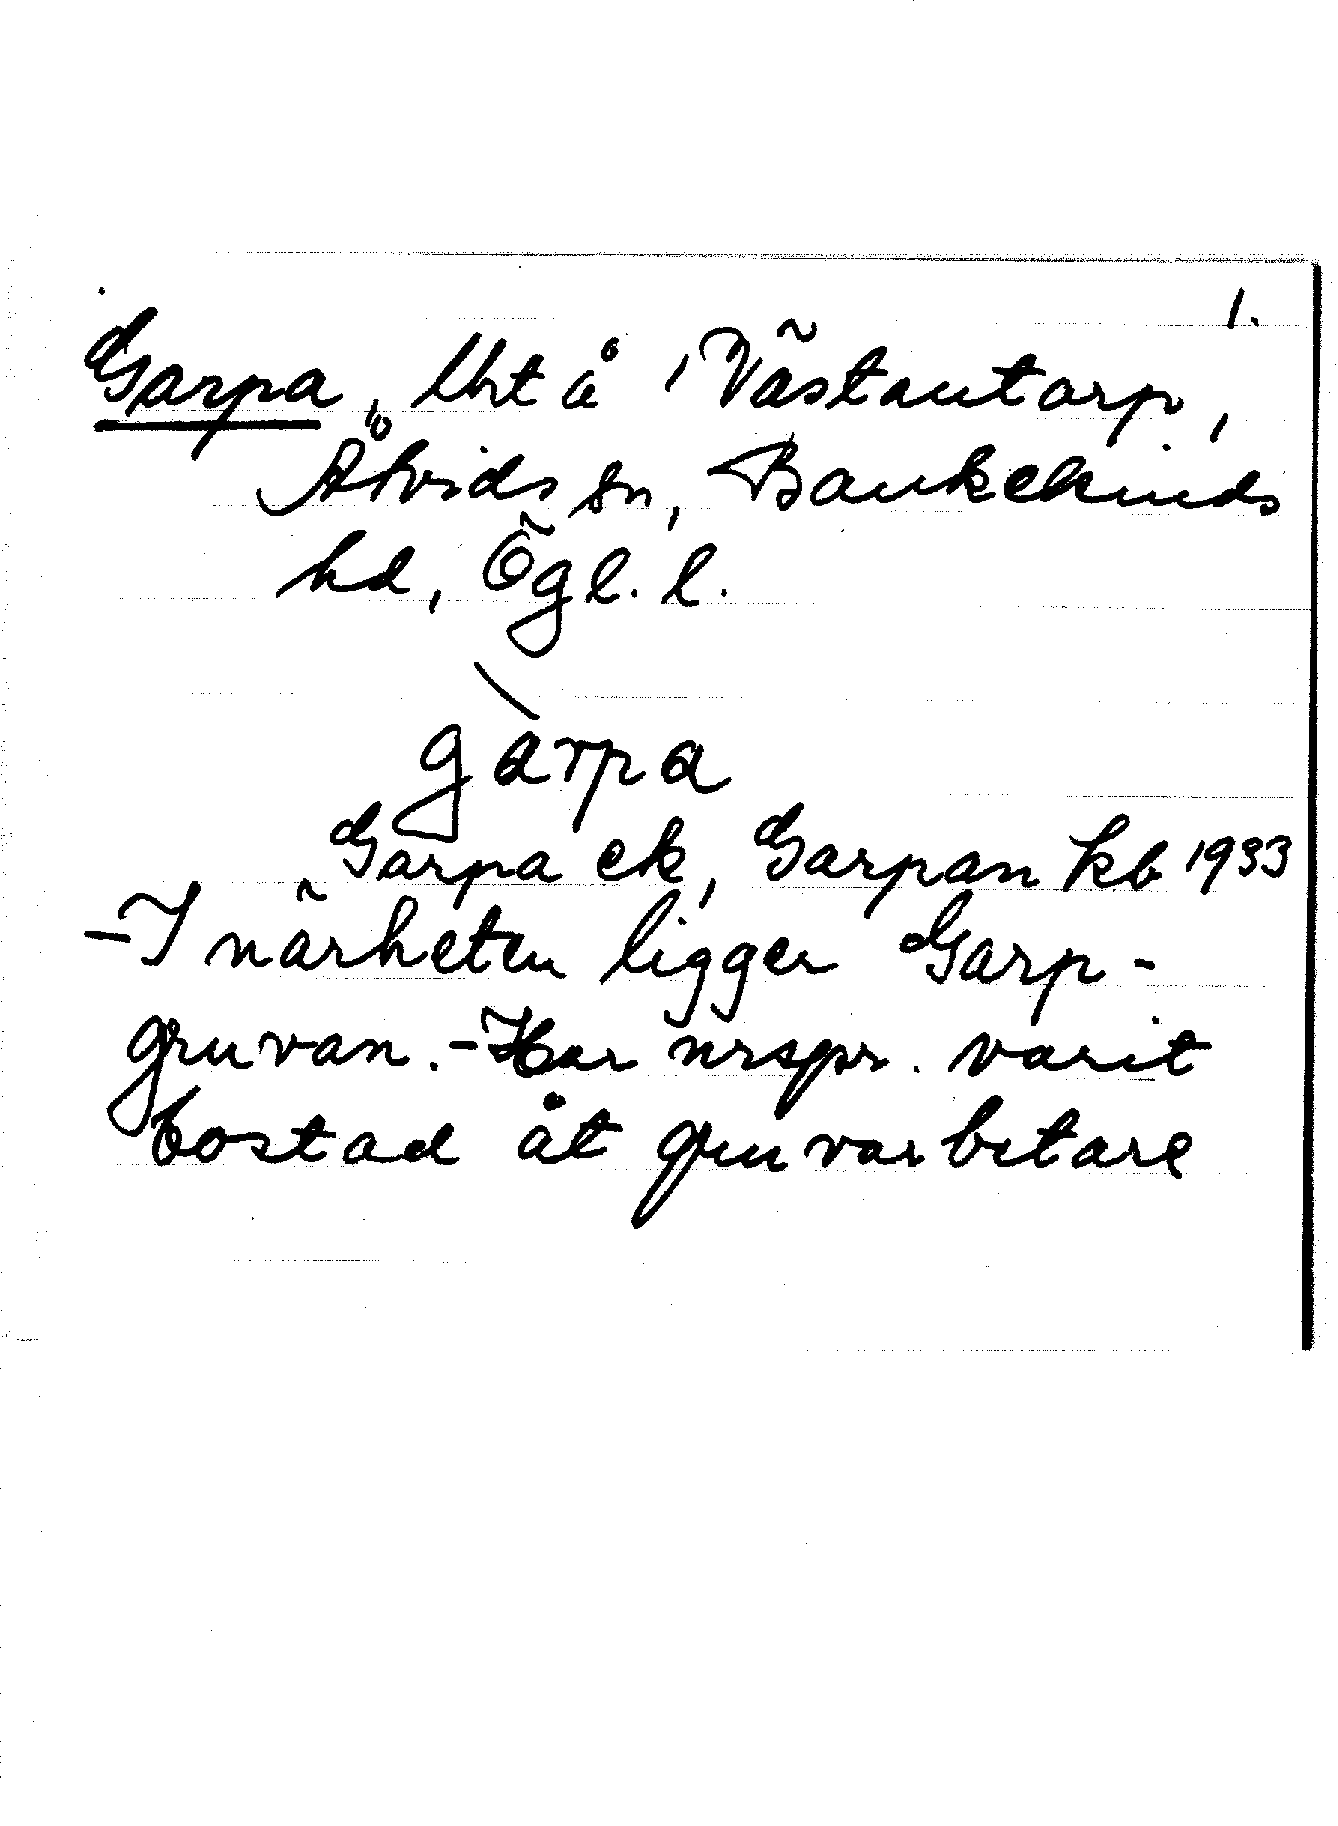 1.
Garpa, lht å 'Västantorp,
Åtvids sn, Bankekinds
hd, Ögl. l.
gàrpa
Garpa ek, Garpan kb 1933
-I närheten ligger Garp-
gruvan. -Har urspr. varit
bostad åt gruvarbetare